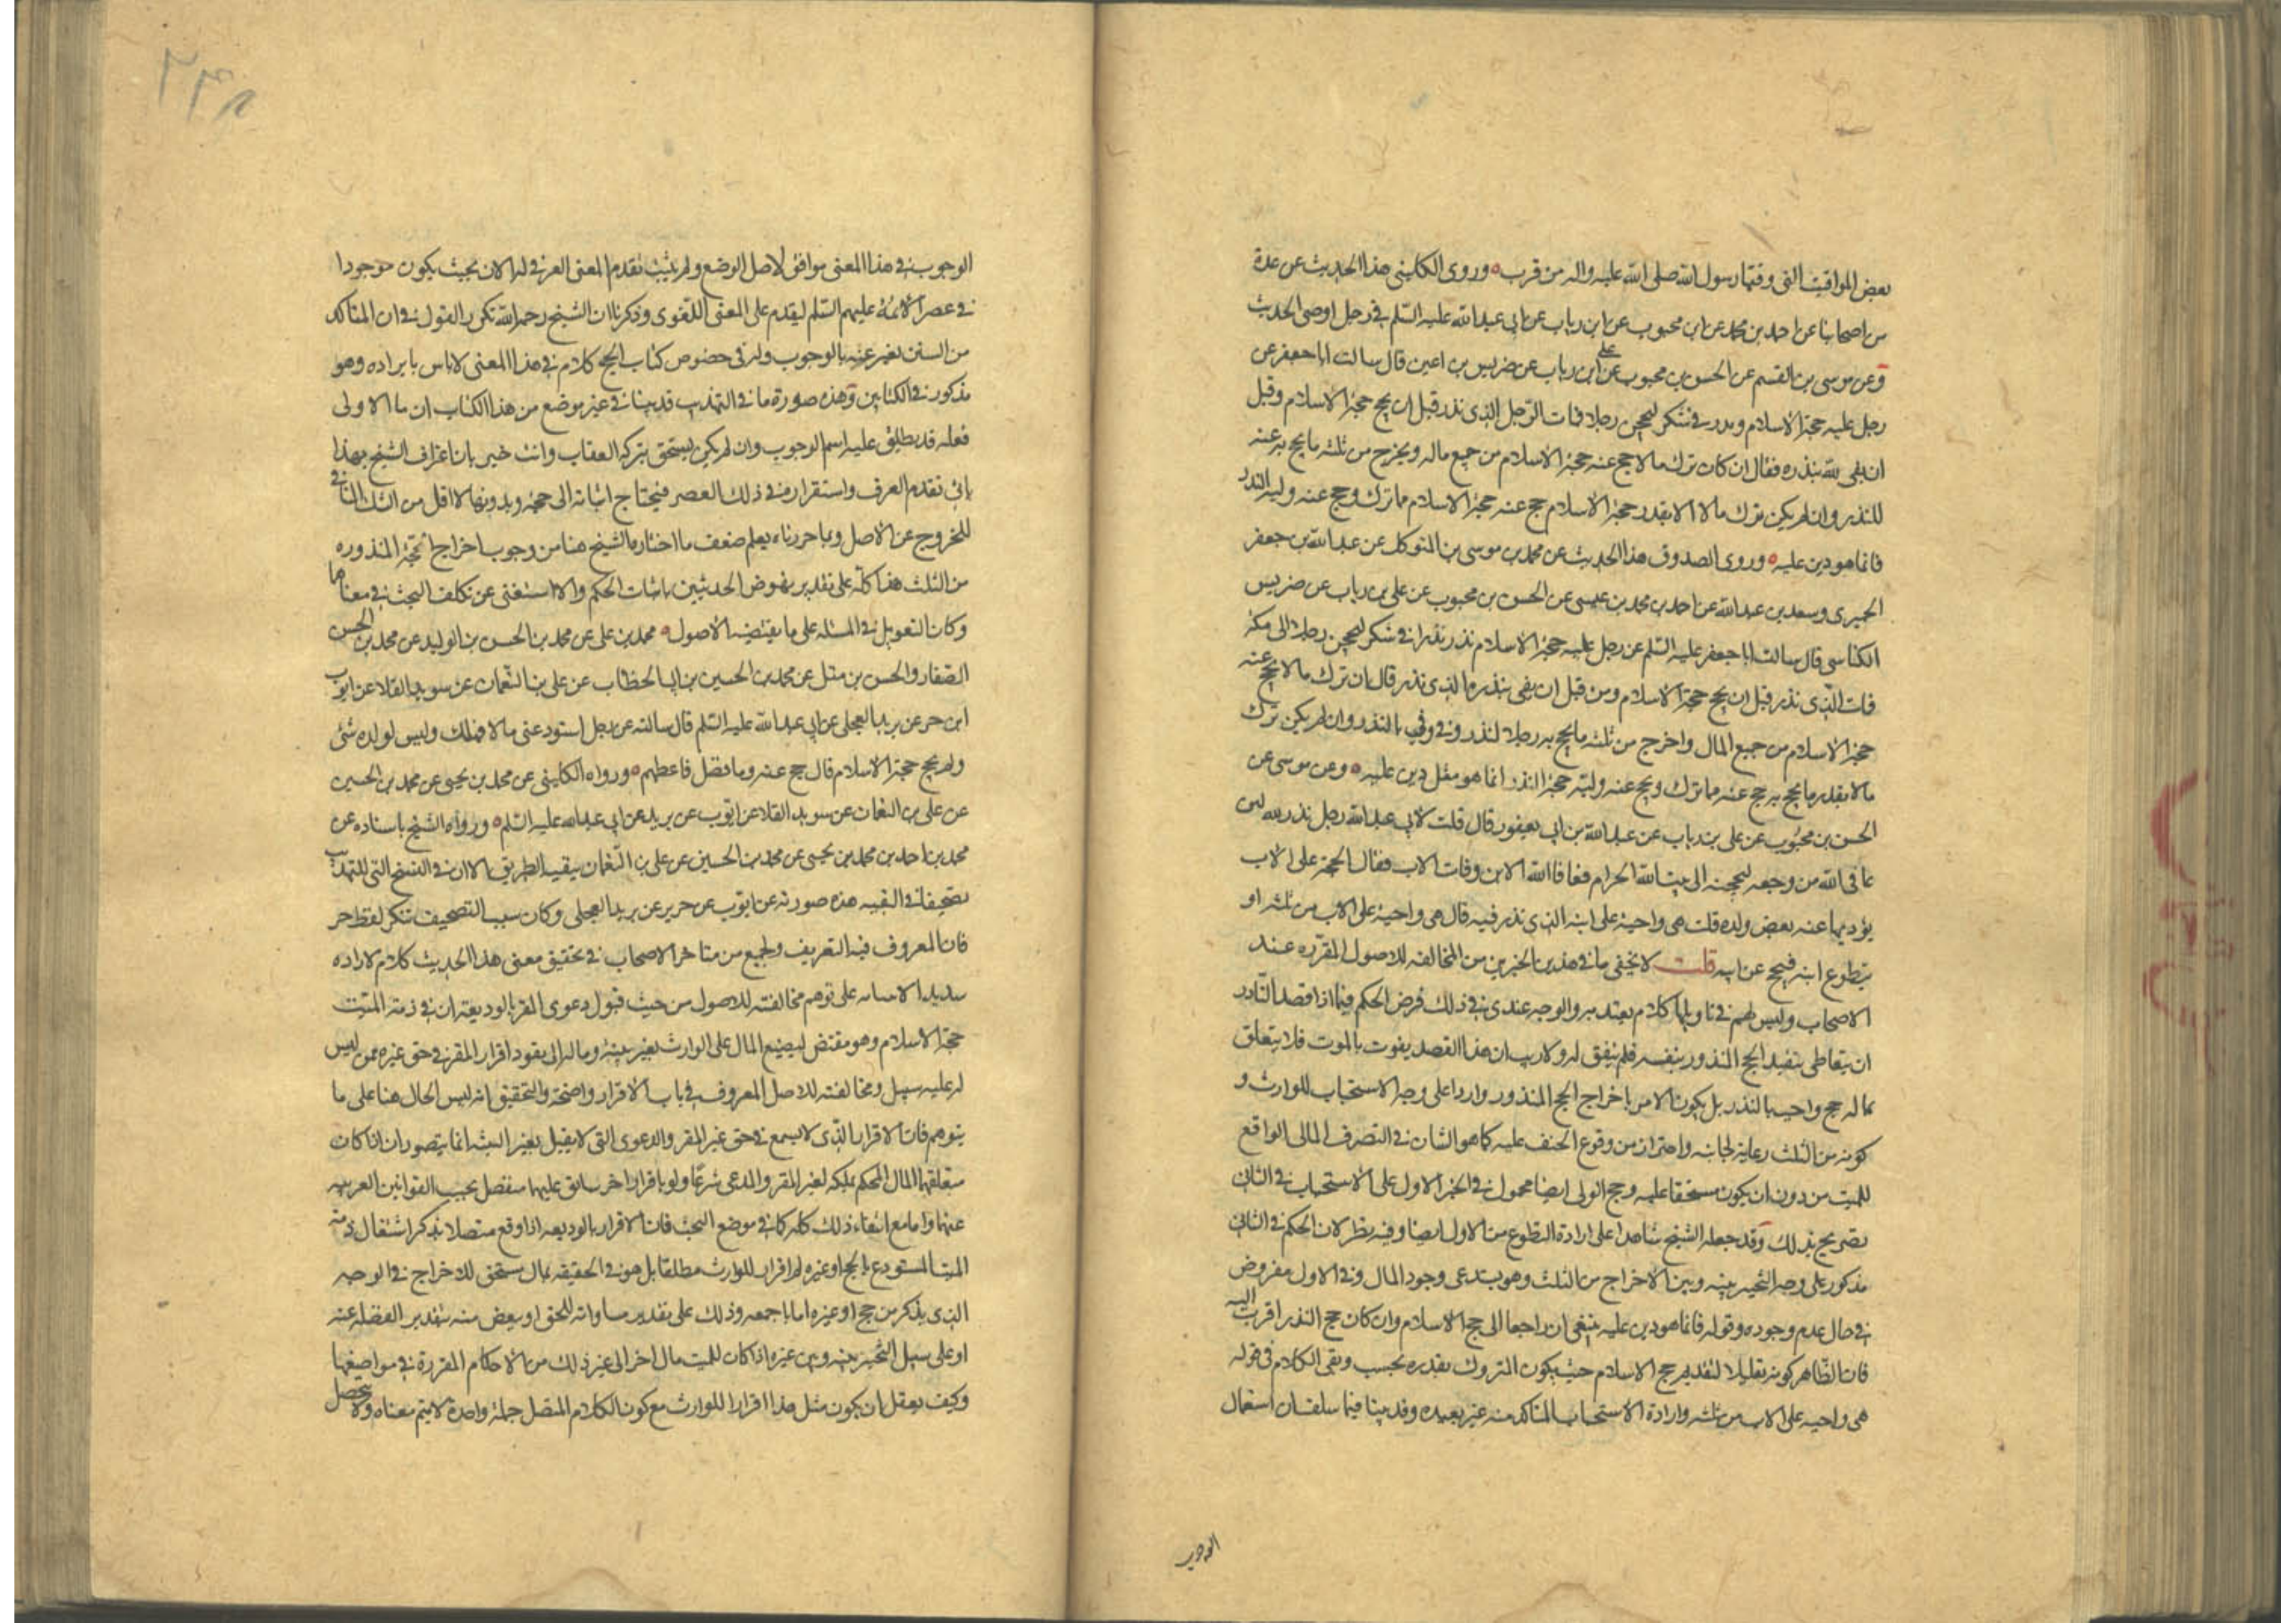 بعض المواقيت التى وقتها رسول الله صلى الله عليه واله من قرب ه وروى الكلينى هذا الحديث عن عدة
من اصحابنا عن احمد بن محمد عن ابن محبوب عن ابن رياب عن ابى عبد الله عليه السلم فى رجل اوصى الحديث
وعن موسى بن القسم عن الحسن بن محبوب عن على ابن رياب عن ضريس بن اعين قال سالت ابا جعفر عن
رجل عليه حجة الاسلام ونذر فى شكر ليحجن رجلا فمات الرجل الذى نذر قبل ان يحج حجة الاسلام وقبل
ان يفى لله بنذره فقال ان كان ترك مالا حج عنه حجة الاسلام من جميع ماله ويخرج من ثلثه ما يحج به عنه
للنذر وان لم يكن ترك مالا الا بقدر حجة الاسلام حج عنه حجة الاسلام مما ترك وحج عنه وليه النذر
فانما هو دين عليه ه وروى الصدوق هذا الحديث عن محمد بن موسى بن المتوكل عن عبد الله بن جعفر
الحميرى وسعد بن عبد الله عن احمد بن محمد بن عيسى عن الحسن بن محبوب عن على بن رياب عن ضريس
الكناسى قال سالت ابا جعفر عليه السلم عن رجل عليه حجة الاسلام نذر نذرا فى شكر ليحجن رجلا الى مكة
فمات الذى نذر قبل ان يحج حجة الاسلام ومن قبل ان يفى بنذره الذى نذر قال ان ترك مالا يحج عنه
حجة الاسلام من جميع المال واخرج من ثلثه ما يحج به رجلا لنذره وفى وفى بالنذر وان لم يكن ترك
مالا بقدر ما يحج به حج عنه مما ترك ويحج عنه وليه حجة النذر انما هو مثل دين عليه ه وعن موسى عن
الحسن بن محبوب عن على بن رياب عن عبد الله بن ابى يعفور قال قلت لابى عبد الله رجل نذر لله لئن
عافى الله من وجعه ليحجنه الى بيت الله الحرام فعافا الله الابن ومات الاب فقال الحجة على الاب
يؤديها عنه بعض ولده قلت هى واجبة على ابنه الذى نذر فيه قال هى واجبة على الاب من ثلثه او
يتطوع ابنه فيحج عن ابيه قلت لا يخفى ما فى هذين الخبرين من المخالفه للاصول المقرره عند
الاصحاب وليس لهم فى تاويلها كلام يعتد به والوجه عندى فى ذلك فرض الحكم فيما اذا قصد الناذر
ان يتعاطى بنفيذ الحج المنذور بنفسه فلم يتفق له ولا ريب ان هذا القصد يفوت بالموت فلا يتعلق
بماله حج واجب بالنذر بل يكون الامر باخراج الحج المنذور واردا على وجه الاستحباب للوارث و
كونه من الثلث رعاية لجانبه واحتراز من وقوع الحيف عليه كما هو الشان فى التصرف المالى الواقع
للميت من دون ان يكون مستحقا عليه وحج الولى ايضا محمول فى الخبر الاول على الاستحباب وفى الثانى
تصريح بذلك وقد جعله الشيخ شاهدا على ارادة التطوع من الاول ايضا وفيه نظر لان الحكم فى الثانى
مذكور على وجه التخيير بينه وبين الاخراج من الثلث وهو يستدعى وجود المال وفى الاول مفروض
فى حال عدم وجوده وقوله فانما هو دين عليه ينبغى ان راجعا الى حج الاسلام وان كان حج النذر اقرب اليه
فان الظاهر كونه تعليلا لتقديم حج الاسلام حيث يكون المتروك بقدره فحسب وبقى الكلام فى قوله
هى واجبه على الاب من ثلثه وارادة الاستحباب المتاكد منه غير بعيده وقد بينا فيما سلف ان استعمال
الوجوب
٢٤٨
الوجوب فى هذا المعنى موافق لاصل الوضع ولم يثبت تقدم المعنى العرفى له الان بحيث يكون موجودا
فى عصر الائمة عليهم السلم ليقدم على المعنى اللغوى وذكرنا ان الشيخ رحمه الله تكرر القول فى ان المتاكد
من السنن يعبر عنه بالوجوب وله فى خصوص كتاب الحج كلام فى هذا المعنى لا باس بايراده وهو
مذكور فى الكتابين وهذه صورة ما فى التهذيب قد بينا فى غير موضع من هذا الكتاب ان ما الاولى
فعله قد يطلق عليه اسم الوجوب وان لم يكن يستحق بتركه العقاب وانت خبير بان اعتراف الشيخ بهذا
يابى تقدم العرف واستقراره فى ذلك العصر فيحتاج اثباته الى حجة وبدونها لا اقل من الشك المنافى
للخروج عن الاصل وبما حررناه يعلم ضعف ما اختاره الشيخ هنا من وجوب اخراج الحجة المنذوره
من الثلث هذا كله على تقدير نهوض الحديثين باثبات الحكم والا استغنى عن تكلف البحث فى معناهما
وكان التعويل فى المسئله على ما يقتضيه الاصول ه محمد بن على عن محمد بن الحسن بن الوليد عن محمد بن الحسن
الصفار والحسن بن متيل عن محمد بن الحسين بن ابى الخطاب عن على بن النعمان عن سويد القلا عن ايوب
ابن حر عن بريد العجلى عن ابى عبد الله عليه السلم قال سالته عن رجل استودعنى مالا فهلك وليس لولده شئ
ولم يحج حجة الاسلام قال حج عنه وما فضل فاعطهم ه ورواه الكلينى عن محمد بن يحيى عن محمد بن الحسين
عن على بن النعمان عن سويد القلا عن ايوب عن بريد عن ابى عبد الله عليه السلم ه ورواه الشيخ باسناده عن
محمد بن احمد بن محمد بن يحيى عن محمد بن الحسين عن على بن النعمان ببقية الطريق الا ان فى النسخ التى للتهذيب
تصحيفا فى البقيه هذه صورته عن ايوب عن حريز عن بريد العجلى وكان سبب التصحيف تنكر لفظ حر
فان المعروف فيه التعريف ولجمع من متاخرى الاصحاب فى تحقيق معنى هذا الحديث كلام لا اراه
سديد الابتنائه على توهم مخالفته للاصول من حيث قبول دعوى المقر بالوديعة ان فى ذمة الميت
حجة الاسلام وهو مقتض لتضييع المال على الوارث بغير بينة وماله الى نفود اقرار المقر فى حق غيره ممن ليس
له عليه سبيل ومخالفته للاصل المعروف فى باب الاقرار واضحة والتحقيق انه ليس الحال هنا على ما
يتوهم فان الاقرار الذى لا يسمع فى حق غير المقر والدعوى التى لا يقبل بغير البينه انما يتصوران اذا كان
متعلقهما المال المحكم بملكه لغير المقر والمدعى شرعا ولو باقرار اخر سابق عليهما منفصل بحسب القوانين العربيه
عنهما واما مع انتفاء ذلك كله كما فى موضع البحث فان الاقرار بالوديعه اذا وقع متصلا بذكر اشتغال ذمة
الميت المستودع بالحج او غيره لم اقرار للوارث مطلقا بل هو فى الحقيقه بمال مستحق للاخراج فى الوجه
الذى يذكر من حج او غيره اما باجمعه وذلك على تقدير مساواته للحق او ببعض منه بتقدير الفضله عنه
او على سبيل التخيير بينه وبين غيره اذا كان للميت مال اخر الى غير ذلك من الاحكام المقررة فى مواضعها
وكيف يعقل ان يكون مثل هذا اقرارا للوارث مع كون الكلام المتصل جملة واحدة لا يتم معناه ولا يتحصل